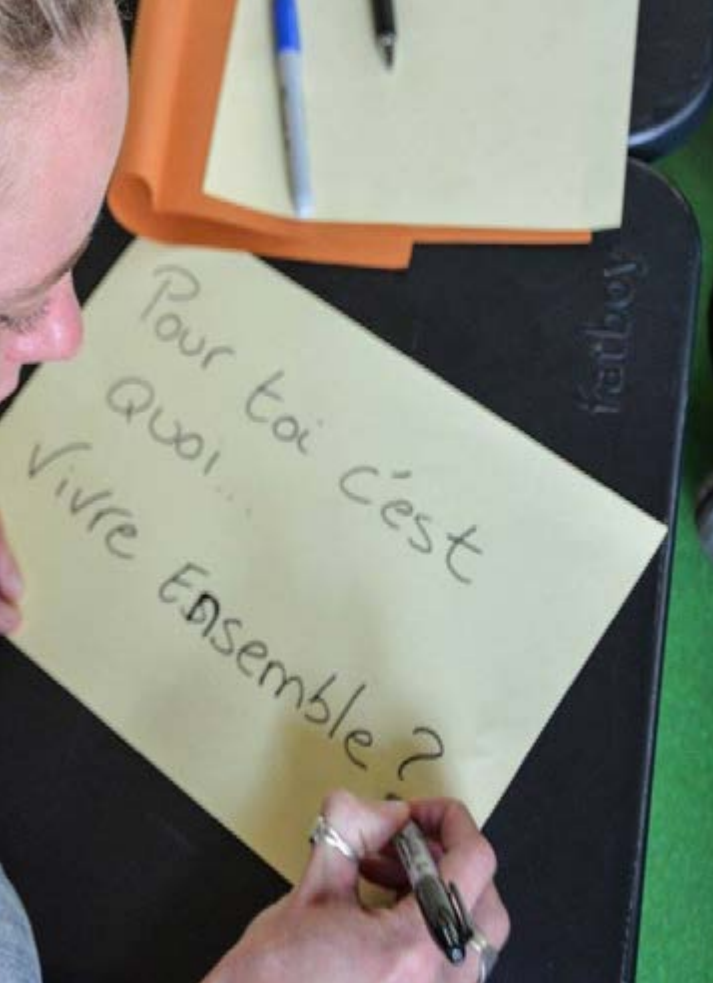 Pour toi c'est
Quoi...
Vivre Ensemble?
fatboy